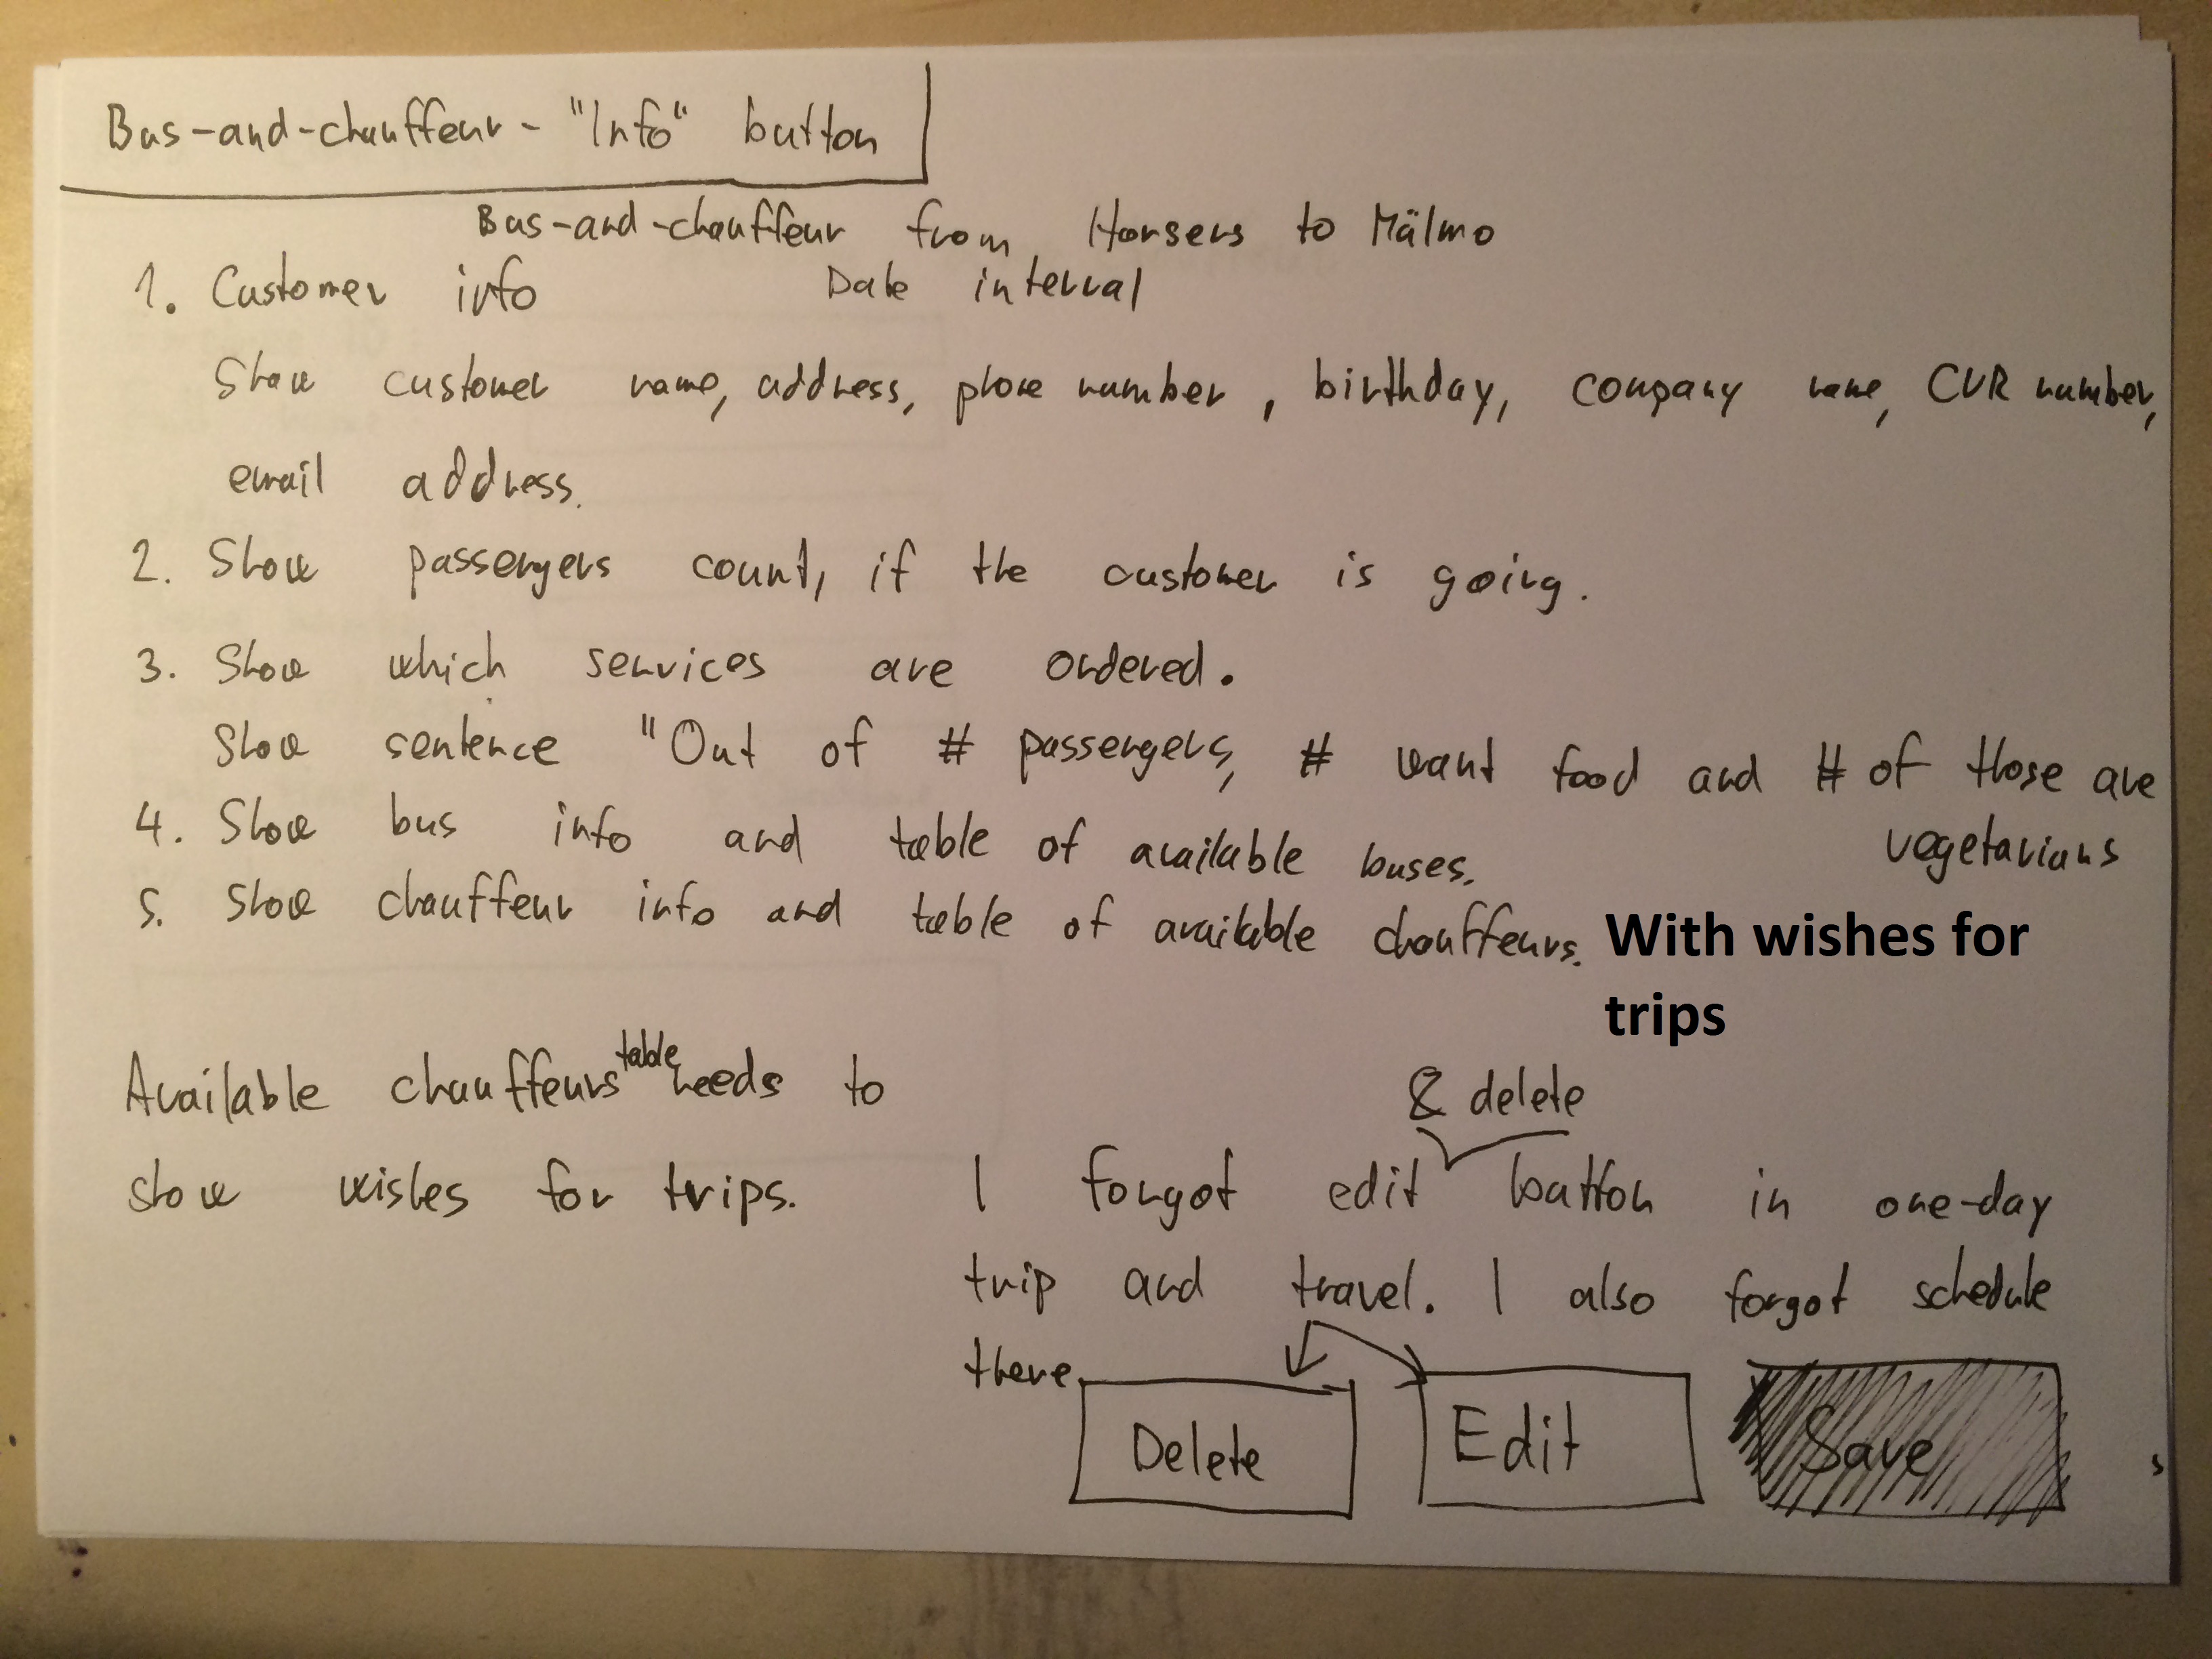 Bus-and-chauffeur - "Info" button
Bus-and-chauffeur from Horsens to Mälmo
1. Customer info
Date interval
Show customer name, address, phone number, birthday, company name, CVR number,
email address.
2. Show passengers count, if the customer is going.
3. Show which services are ordered.
Show sentence "Out of # passengers, # want food and # of those are
vegetarians
4. Show bus info and table of available buses.
5. Show chauffeur info and table of available chauffeurs. With wishes for
trips
Available chauffeurs table needs to
show wishes for trips.
& delete
I forgot edit button in one-day
trip and travel. I also forgot schedule
there.
Delete
Edit
Save
s